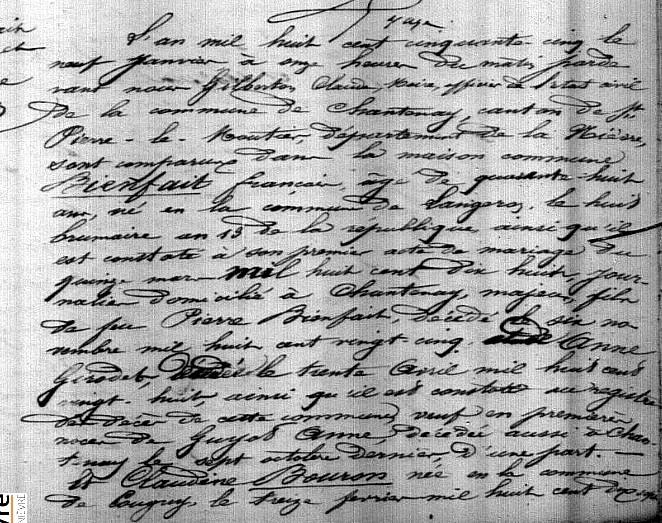 L'an mil huit cent cinquante-cinq le
neuf Janvier à onze heures du matin, parde
vant nous Gilberton Claude, Maire, officier de l'état civil
de la commune de Chantenay, canton de St
Pierre-le-Moutier, département de la Nièvre,
sont comparus dans la maison commune
Bienfait français, âgé de quarante-huit
ans, né en la commune de Langeron, le huit
brumaire an 15 de la république ainsi qu'il
est constaté à son premier acte de mariage du
quinze mars mil huit cent dix huit, jour-
nalier domicilié à Chantenay, majeur, fils
de feu Pierre Bienfait, décédé le six no
vembre mil huit cent vingt cinq, Anne
Girodet, le trente Avril mil huit cent
vingt-huit ainsi qu'il est constaté au registre
des décès de cette commune, veuf en premières
noces de Guyot Anne, décédée aussi à Chan-
tenay le sept octobre dernier, d'une part. —
Et Claudine Bouron née en la commune
de Cougny le treize février mil huit cent
NIÈVRE